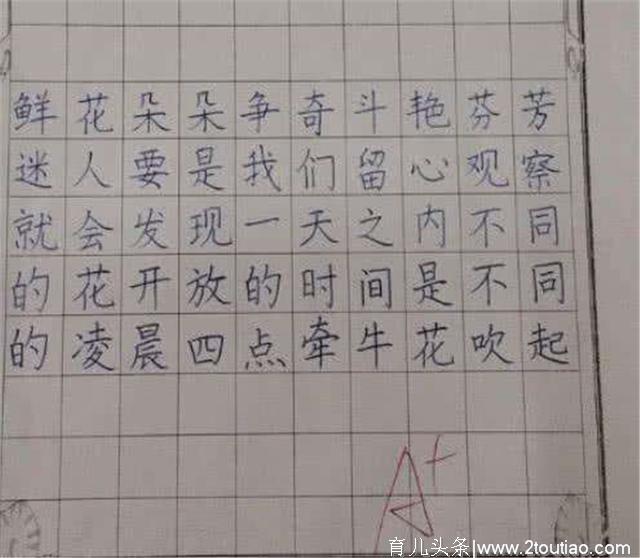 鲜花朵朵争奇斗艳芬芳
迷人要是我们留心观察
就会发现一天之内不同
的花开放的时间是不同
的凌晨四点牵牛花吹起
A+
育儿头条|www.2toutiao.com